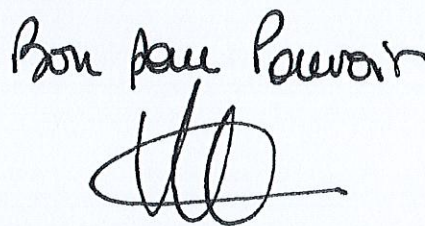 Bon pour Pouvoir